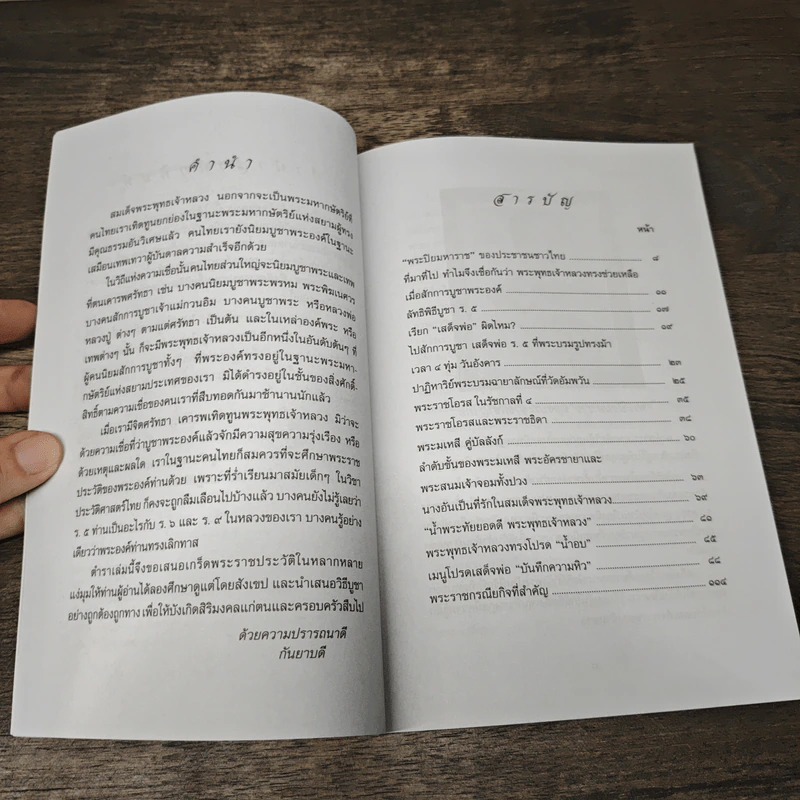 คำนำ
สมเด็จพระพุทธเจ้าหลวง นอกจากจะเป็นพระมหากษัตริย์ที่
คนไทยเราเทิดทูนยกย่องในฐานะพระมหากษัตริย์แห่งสยามผู้ทรง
มีคุณธรรมอันวิเศษแล้ว คนไทยเรายังนิยมบูชาพระองค์ในฐานะ
เสมือนเทพเทวาผู้บันดาลความสำเร็จอีกด้วย
ในวิถีแห่งความเชื่อนั้นคนไทยส่วนใหญ่จะนิยมบูชาพระและเทพ
ที่ตนเคารพศรัทธา เช่น บางคนนิยมบูชาพระพรหม พระพิฆเนศวร
บางคนสักการบูชาเจ้าแม่กวนอิม บางคนบูชาพระ หรือหลวงพ่อ
หลวงปู่ ต่างๆ ตามแต่ศรัทธา เป็นต้น และในเหล่าองค์พระ หรือ
เทพต่างๆ นั้น ก็จะมีพระพุทธเจ้าหลวงเป็นอีกหนึ่งในอันดับต้นๆ ที่
ผู้คนนิยมสักการบูชาทั้งๆ ที่พระองค์ทรงอยู่ในฐานะพระมหา-
กษัตริย์แห่งสยามประเทศของเรา มิได้ดำรงอยู่ในชั้นของสิ่งศักดิ์-
สิทธิ์ตามความเชื่อของคนเราที่สืบทอดกันมาช้านานนักแล้ว
เมื่อเรามีจิตศรัทธา เคารพเทิดทูนพระพุทธเจ้าหลวง มิว่าจะ
ด้วยความเชื่อที่ว่าบูชาพระองค์แล้วจักมีความสุขความรุ่งเรือง หรือ
ด้วยเหตุและผลใด เราในฐานะคนไทยก็สมควรที่จะศึกษาพระราช
ประวัติของพระองค์ท่านด้วย เพราะที่ร่ำเรียนมาสมัยเด็กๆ ในวิชา
ประวัติศาสตร์ไทย ก็คงจะถูกลืมเลือนไปบ้างแล้ว บางคนยังไม่รู้เลยว่า
ร. ๕ ท่านเป็นอะไรกับ ร. ๖ และ ร. ๙ ในหลวงของเรา บางคนรู้อย่าง
เดียวว่าพระองค์ท่านทรงเลิกทาส
ตำราเล่มนี้จึงขอเสนอเกร็ดพระราชประวัติในหลากหลาย
แง่มุมให้ท่านผู้อ่านได้ลองศึกษาดูแต่โดยสังเขป และนำเสนอวิธีบูชา
อย่างถูกต้องถูกทาง เพื่อให้บังเกิดสิริมงคลแก่ตนและครอบครัวสืบไป
ด้วยความปรารถนาดี
กันยาบดี
สารบัญ
หน้า
"พระปิยมหาราช" ของประชาชนชาวไทย ๘
ที่มาที่ไป ทำไมจึงเชื่อกันว่า พระพุทธเจ้าหลวงทรงช่วยเหลือ
เมื่อสักการบูชาพระองค์ ๑๑
ลัทธิพิธีบูชา ร. ๕ ๑๗
เรียก "เสด็จพ่อ" ผิดไหม? ๑๙
ไปสักการบูชา เสด็จพ่อ ร. ๕ ที่พระบรมรูปทรงม้า
เวลา ๔ ทุ่ม วันอังคาร ๒๓
ปาฏิหาริย์พระบรมฉายาลักษณ์ที่วัดอัมพวัน ๒๕
พระราชโอรส ในรัชกาลที่ ๔ ๓๕
พระราชโอรสและพระราชธิดา ๓๘
พระมเหสี คู่บัลลังก์ ๖๐
ลำดับชั้นของพระมเหสี พระอัครชายาและ
พระสนมเจ้าจอมทั้งปวง ๖๓
นางอันเป็นที่รักในสมเด็จพระพุทธเจ้าหลวง ๖๙
"น้ำพระทัยยอดดี พระพุทธเจ้าหลวง" ๘๑
พระพุทธเจ้าหลวงทรงโปรด "น้ำอบ" ๘๕
เมนูโปรดเสด็จพ่อ "บันทึกความหิว" ๘๘
พระราชกรณียกิจที่สำคัญ ๑๑๔